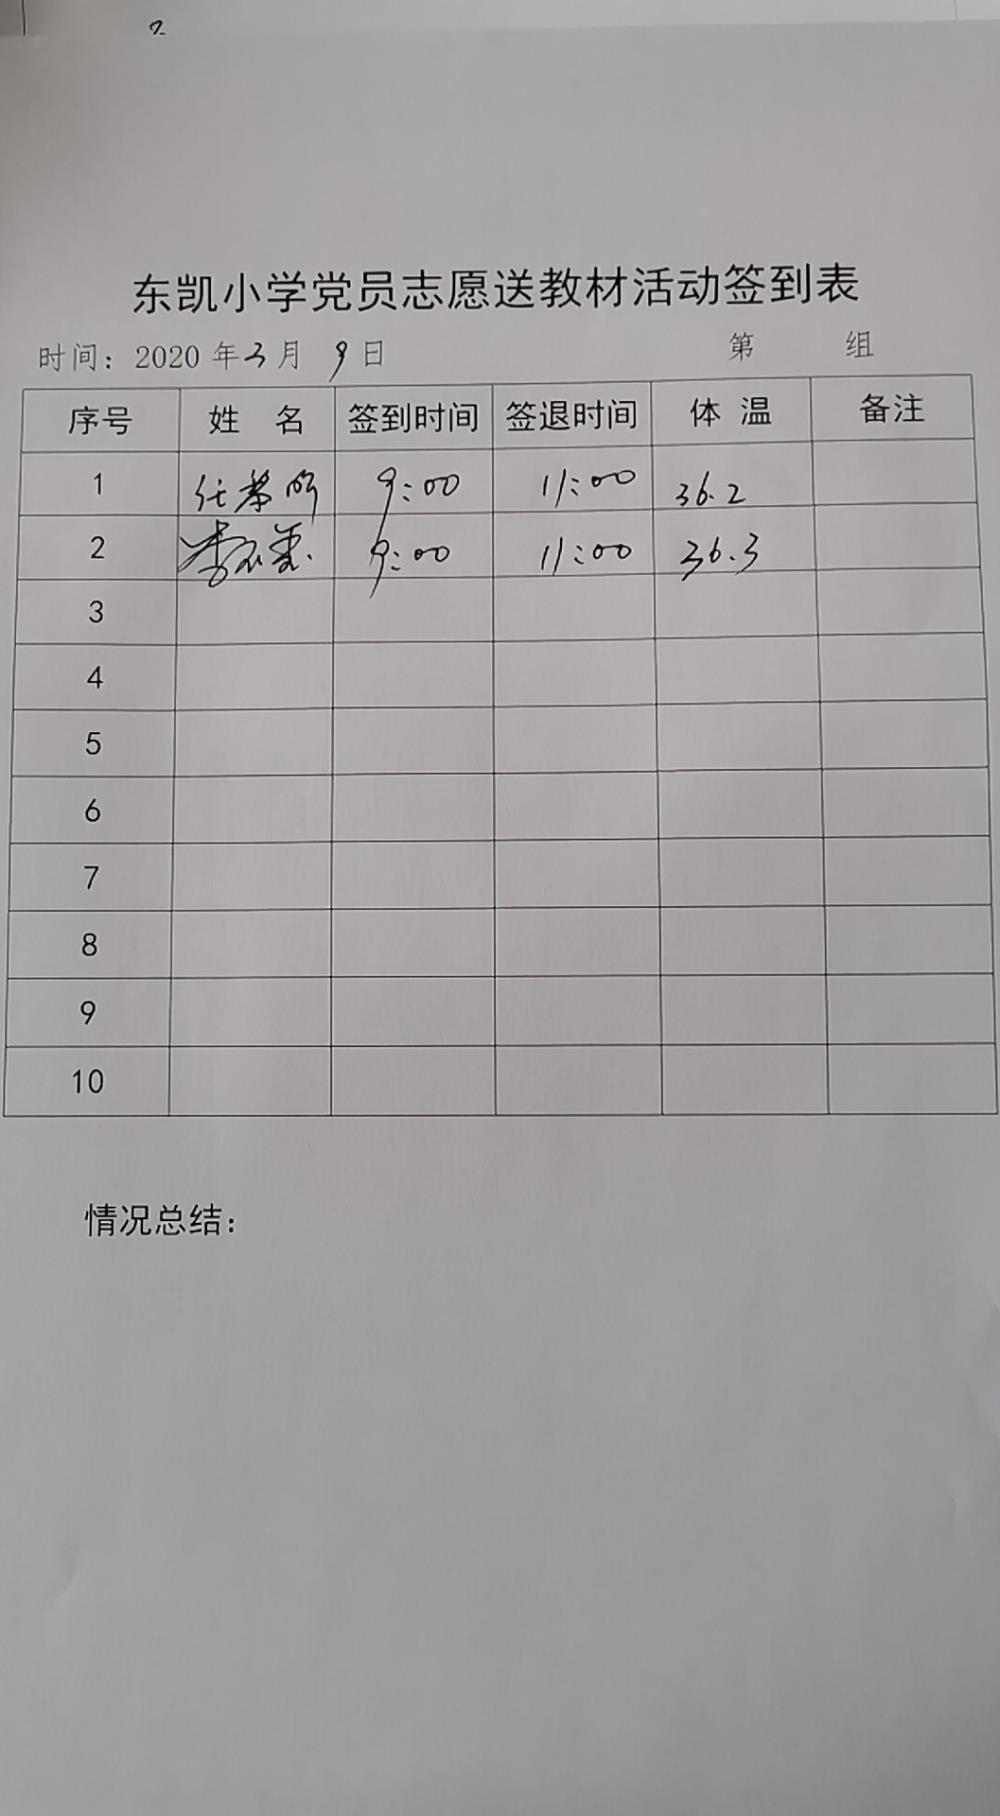 2
东凯小学党员志愿送教材活动签到表
时间：2020年3月9日 第 组
序号 姓 名 签到时间 签退时间 体 温 备注
1 任 9:00 11:00 36.2
2 李 9:00 11:00 36.3
3
4
5
6
7
8
9
10
情况总结：